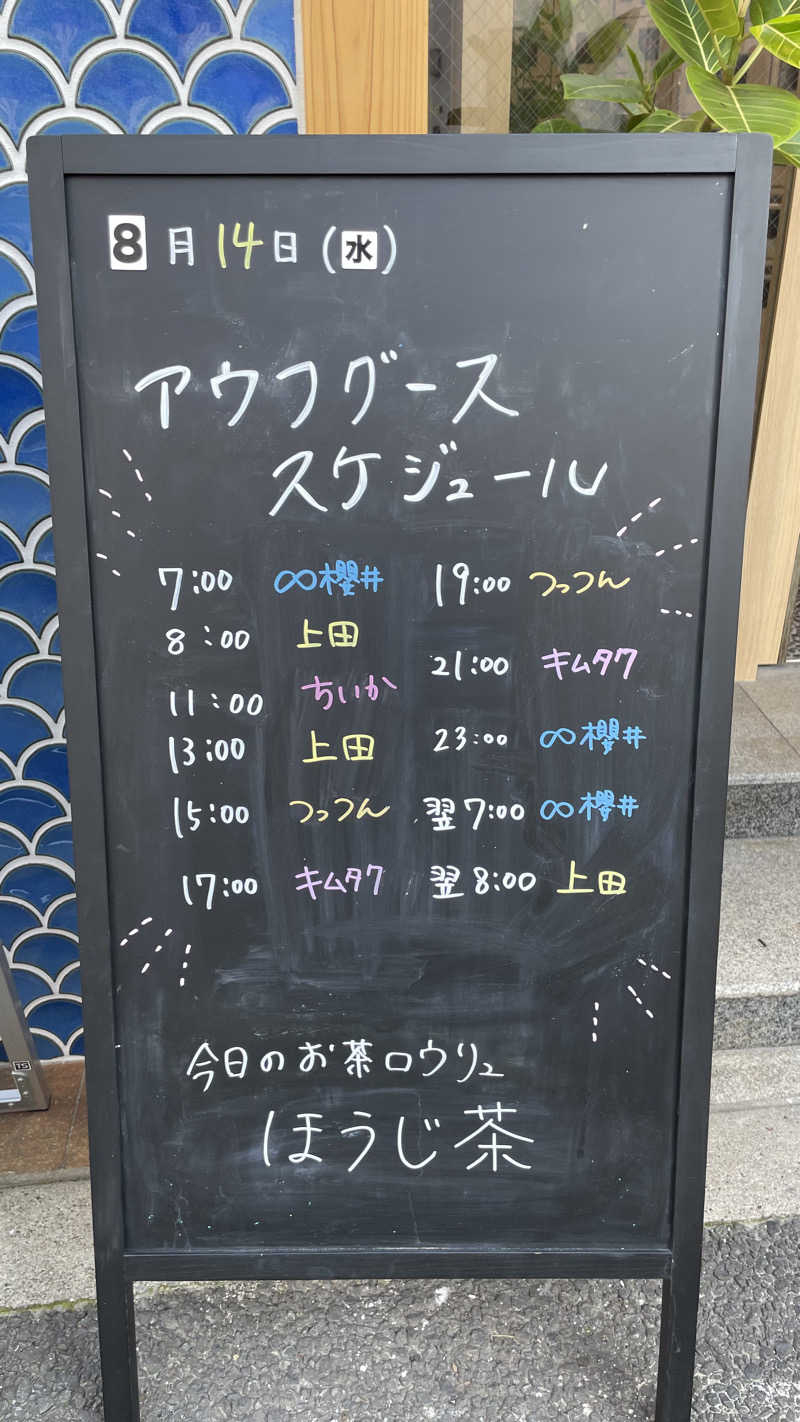 8月14日(水)
アウフグース
スケジュール
7:00 ∞櫻井
8:00 上田
11:00 ちいか
13:00 上田
15:00 つっつん
17:00 キムタク
19:00 つっつん
21:00 キムタク
23:00 ∞櫻井
翌7:00 ∞櫻井
翌8:00 上田
今日のお茶ロウリュ
ほうじ茶
TS